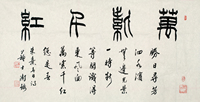 萬紫千紅
勝日尋芳
泗水濱
無邊光景
一時新
等閒識得
東風面
萬紫千紅
總是春
朱熹春日